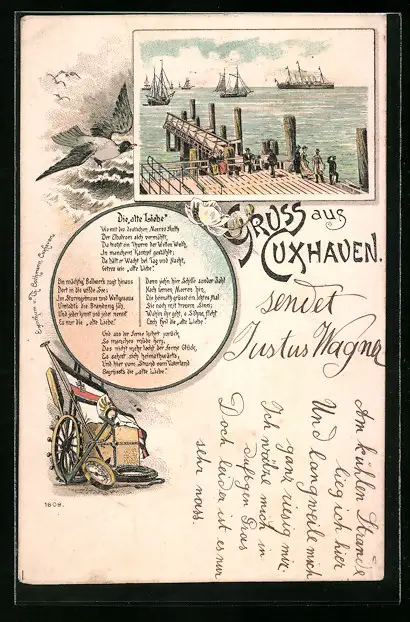 GRUSS aus
CUXHAVEN.
Die „alte Liebe“
Wo mit des deutschen Meeres Fluth
Der Elbstrom sich vermählt,
Da trotzt ein Thurm der Wellen Wuth,
In manchem Kampf gestählt;
Da hält er Wacht bei Tag und Nacht,
Getreu wie „alte Liebe“.
Ein mächtig' Bollwerk ragt hinaus
Dort in die wilde See;
Im Sturmgebraus und Wellgesaus
Umtobt's die Brandung jäh,
Und jeder kennt und jeder nennt
Es nur die „alte Liebe“.
Dann zieh'n hier Schiffe sonder Zahl
Nach fernen Meeren hin,
Die heimath grüsst ein letztes Mal
Sie noch mit treuem Sinn;
Wohin ihr geht, o Söhne, fleht
Euch Heil die „alte Liebe“.
Und aus der Ferne kehrt zurück
So manches müde herz;
Das nicht mehr lockt der ferne Glück,
Es sehnt sich heimathwärts;
Und hier vom Strand vom Vaterland
Begrüsst's die „alte Liebe“.
Eigenthum v. Cuxhaven.
1609.
sendet
Justus Wagner
Am kühlen Strande
lieg ich hier
Und langweile mich
ganz riesig mir.
Ich wälze mich in
saftgen Gras
Doch leider ist es nur
sehr nass.